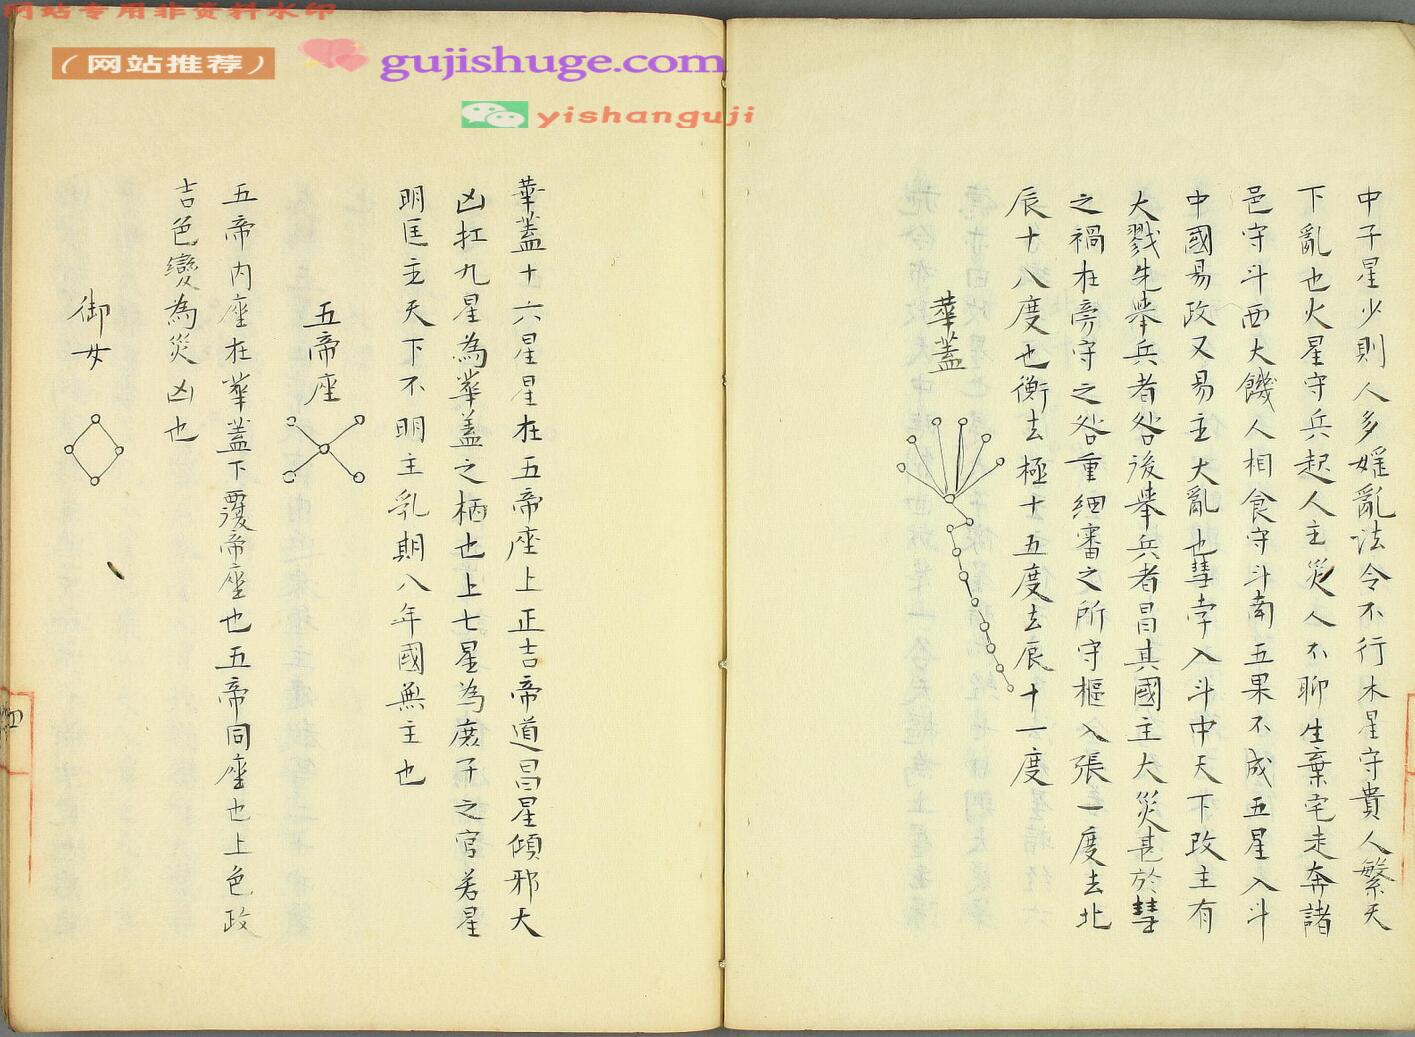 网站专用非资料水印
（网站推荐）
gujishuge.com
yishanguji
中子星少則人多婬亂法令不行木星守貴人繫天
下亂也火星守兵起人主災人不聊生棄宅走奔諸
邑守斗西大饑人相食守斗南五果不成五星入斗
中國易政又易主大亂也彗孛入斗中天下改主有
大戮先舉兵者咎後舉兵者昌其國主大災甚於彗
之禍在旁守之咎重細審之所守樞入張一度去北
辰十八度也衡去極十五度去辰十一度
華蓋
華蓋十六星星在五帝座上正吉帝道昌星傾邪大
凶扛九星為華蓋之柄也上七星為庶子之官若星
明匡主天下不明主乱期八年國無主也
五帝座
五帝内座在華蓋下覆帝座也五帝同座也上色政
吉色變為災凶也
御女